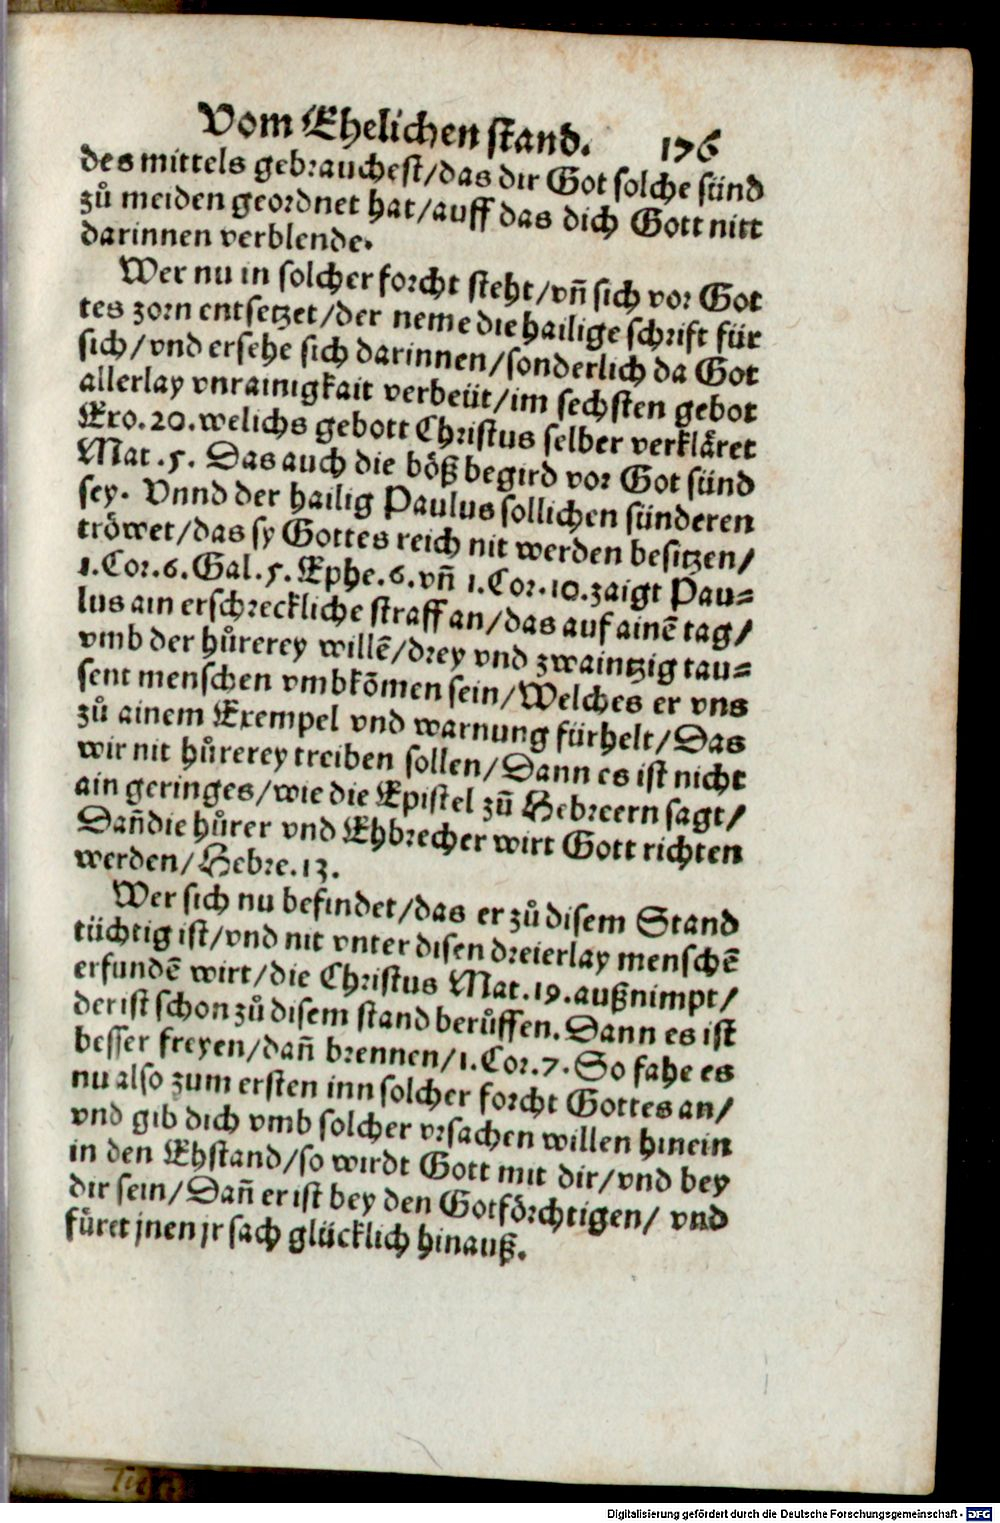 Vom Ehelichen stand. 176
des mittels gebrauchest/das dir Got solche sünd
zů meiden geordnet hat/auff das dich Gott nitt
darinnen verblende.
Wer nu in solcher forcht steht/vñ sich vor Got
tes zorn entsetzet/der neme die hailige schrift für
sich/vnd ersehe sich darinnen/sonderlich da Got
allerlay vnrainigkait verbeüt/im sechsten gebot
Exo.20.welichs gebott Christus selber verkläret
Mat.5. Das auch die böß begird vor Got sünd
sey. Vnnd der hailig Paulus sollichen sünderen
tröwet/das sy Gottes reich nit werden besitzen/
1.Cor.6.Gal.5.Ephe.6.vñ 1.Cor.10.zaigt Pau=
lus ain erschreckliche straff an/das auf ainē tag/
vmb der hůrerey willē/drey vnd zwaintzig tau=
sent menschen vmbkōmen sein/Welches er vns
zů ainem Exempel vnd warnung fürhelt/Das
wir nit hůrerey treiben sollen/Dann es ist nicht
ain geringes/wie die Epistel zů Hebreern sagt/
Dañ die hůrer vnd Ehbrecher wirt Gott richten
werden/Hebre.13.
Wer sich nu befindet/das er zů disem Stand
tüchtig ist/vnd nit vnter disen dreierlay menschē
erfundē wirt/die Christus Mat.19.außnimpt/
der ist schon zů disem stand berůffen.Dann es ist
besser freyen/dañ brennen/1.Cor.7.So fahe es
nu also zum ersten inn solcher forcht Gottes an/
vnd gib dich vmb solcher vrsachen willen hinein
in den Ehstand/so wirdt Gott mit dir/vnd bey
dir sein/Dañ er ist bey den Gotförchtigen/ vnd
füret jnen jr sach glücklich hinauß.
Digitalisierung gefördert durch die Deutsche Forschungsgemeinschaft - DFG